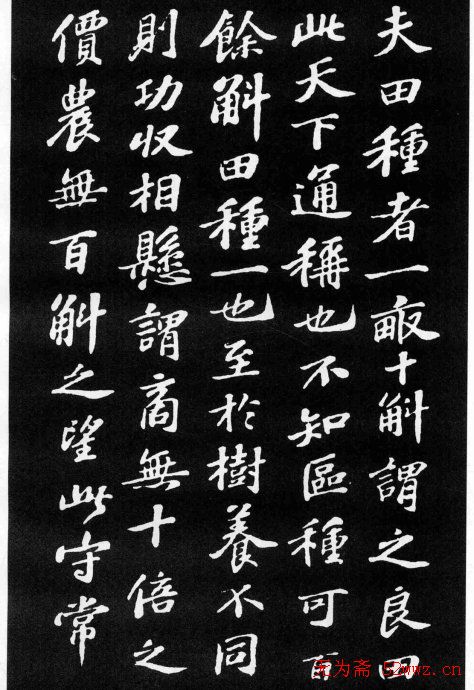 夫田種者一畞十斛謂之良田
此天下通稱也不知區種可百
餘斛田種一也至於樹養不同
則功收相懸謂商無十倍之
價農無百斛之望此守常
无为斋 52wwz.cn